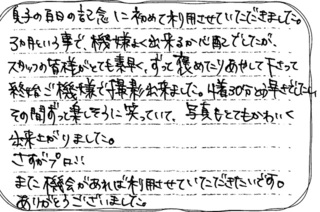 息子の百日の記念に初めて利用させていただきました。
3ヵ月という事で、機嫌よく出来るか心配でしたが、
スタッフの皆様がとても素早く、ずっと褒めたりあやして下さって
終始ご機嫌で撮影出来ました。4着30分との早さでしたし
その間ずっと楽しそうに笑っていて、写真もとてもかわいく
出来上がりました。
さすがプロ!!
また機会があれば利用させていただきたいです。
ありがとうございました。